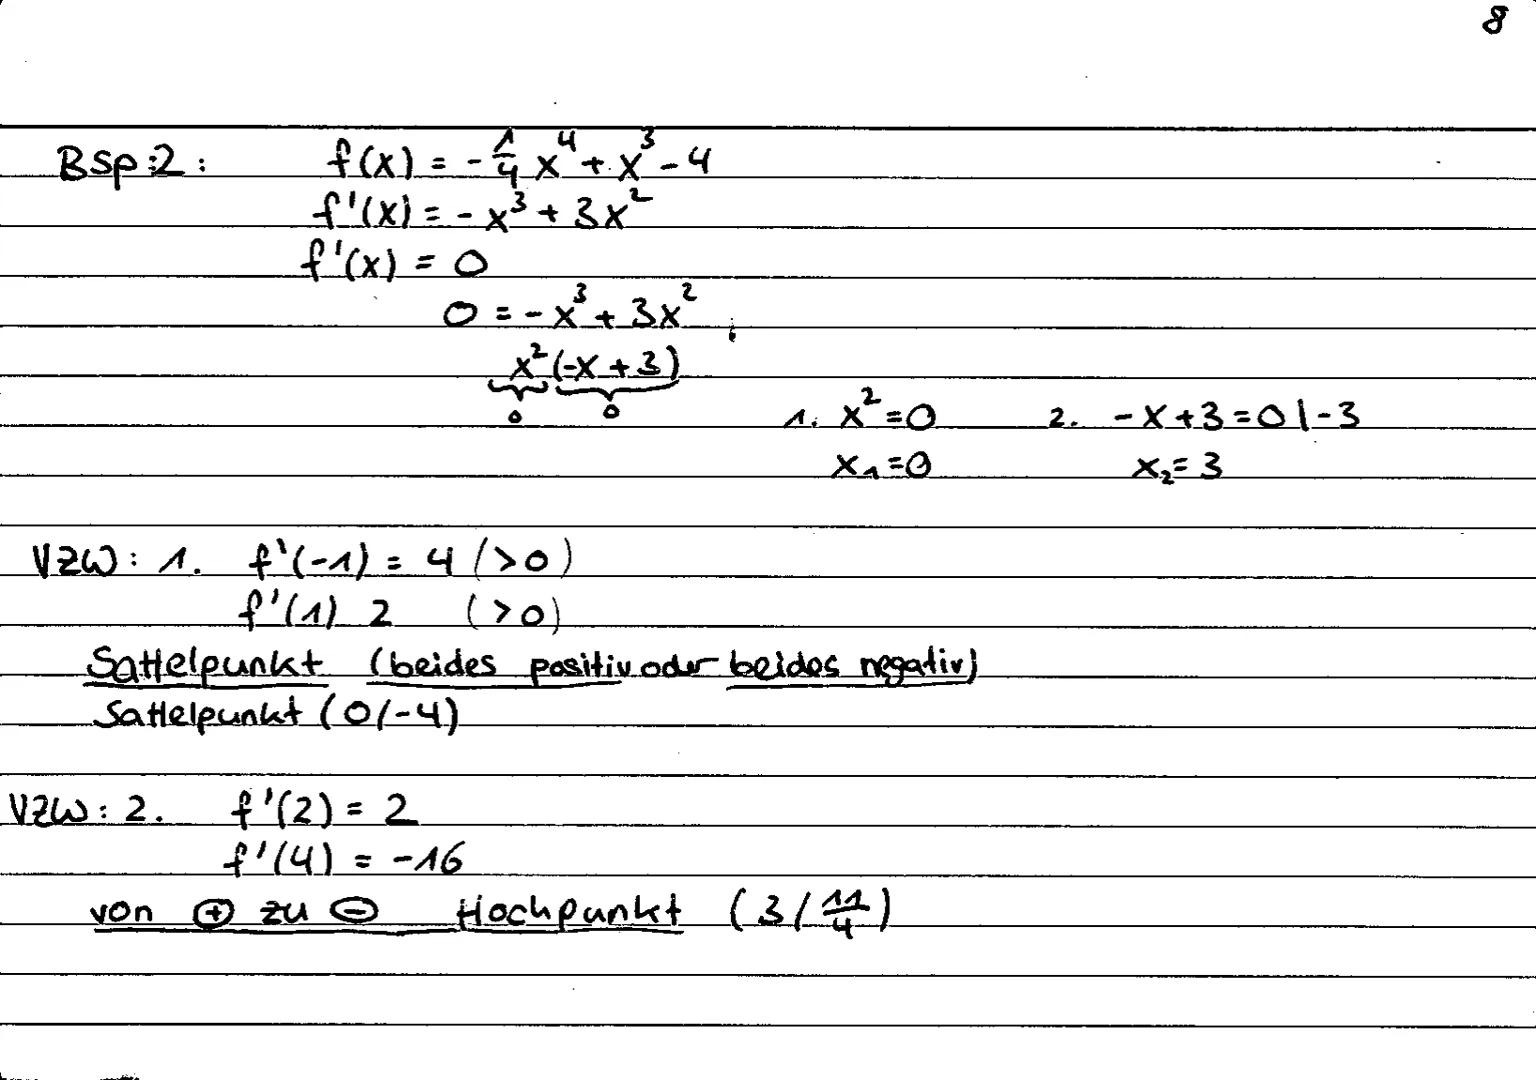 8
Bsp:2: f(x) = -1/4 x^4 + x^3 - 4
f'(x) = -x^3 + 3x^2
f'(x) = 0
0 = -x^3 + 3x^2
x^2 (-x + 3)
0 0 1. x^2 = 0 2. -x + 3 = 0 | -3
x₁ = 0 x₂ = 3
VZW: 1. f'(-1) = 4 (>0)
f'(1) 2 (>0)
Sattelpunkt (beides positiv oder beides negativ)
Sattelpunkt (0/-4)
VZW: 2. f'(2) = 2
f'(4) = -16
von ⊕ zu ⊖ Hochpunkt (3/ 11/4)